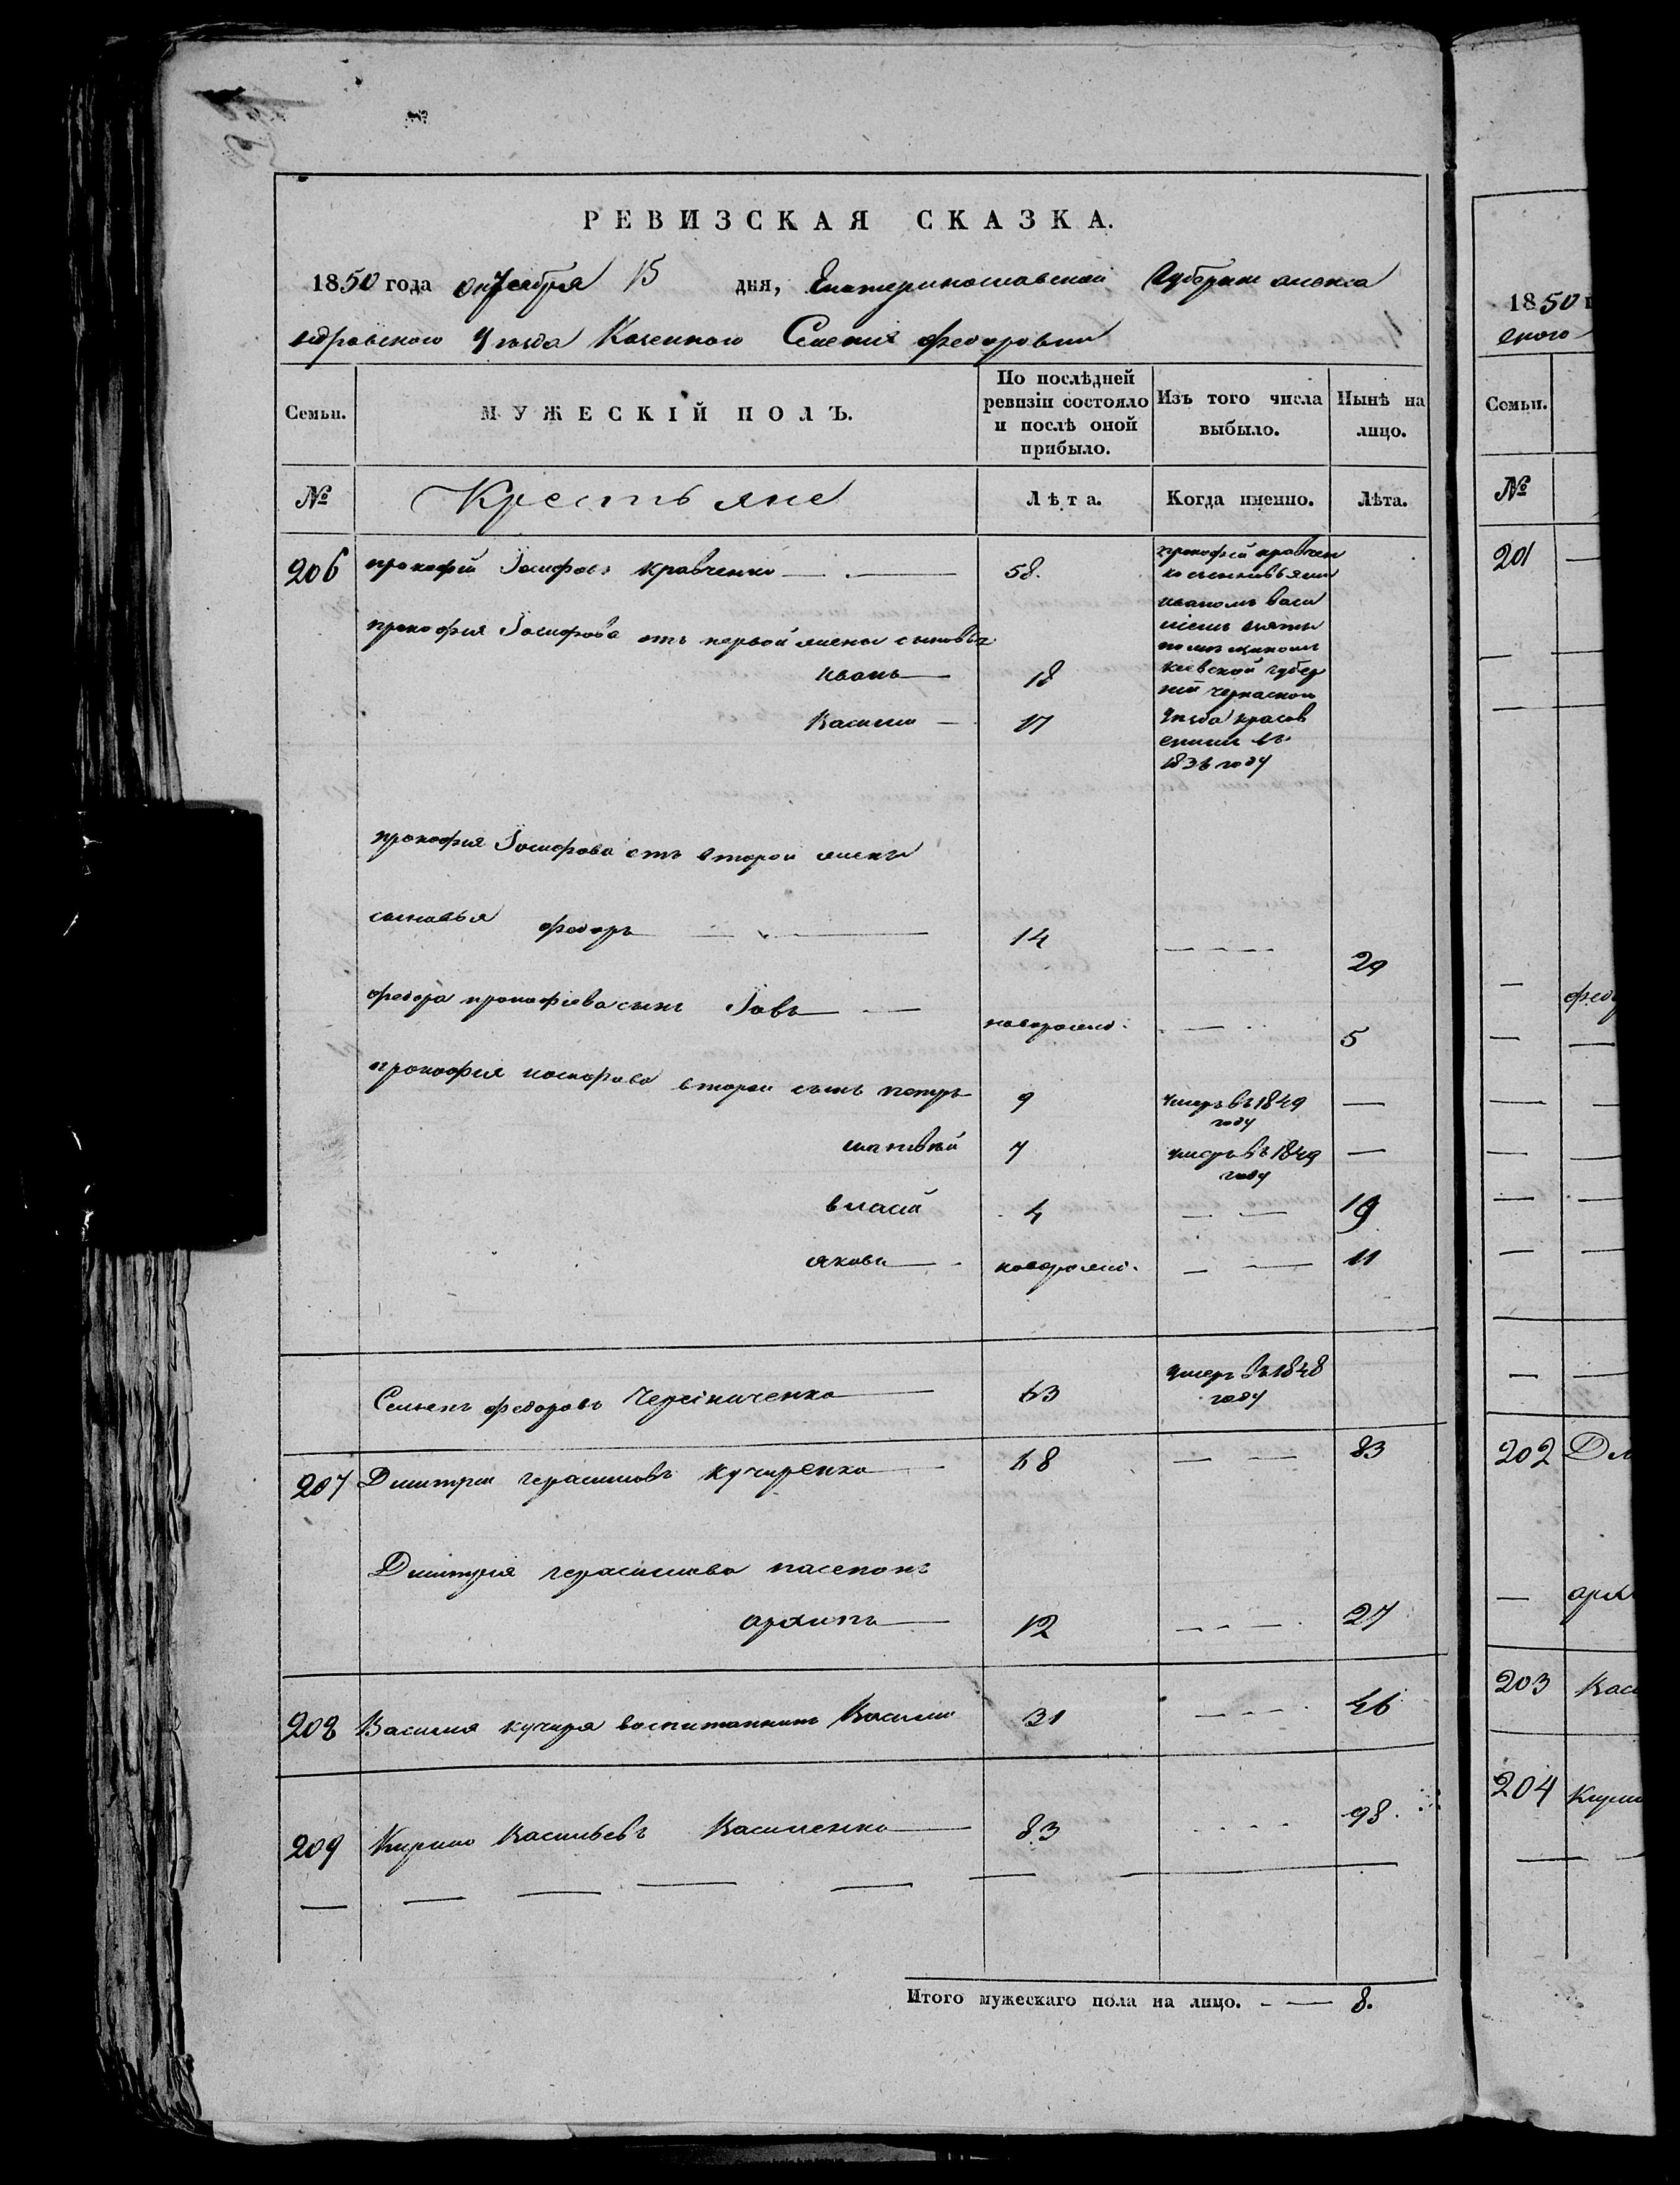 РЕВИЗСКАЯ СКАЗКА.
1850 года октября 15 дня, Екатеринославской Губернии алекса
ндровского Уезда Казенного Селения федоровки
Семьи.
МУЖЕСКІЙ ПОЛЪ.
По послѣдней
ревизіи состояло
и послѣ оной
прибыло.
Изъ того числа
выбыло.
Нынѣ на
лицо.
№
Крестьяне
Лѣта.
Когда именно.
Лѣта.
206 прокофій Іосифовъ Кравченко 58.
прокофій кравчен
ко сыновьями
иваномъ васи
ліемъ
кіевской губер
ніи черкаского
уезда
въ
году
прокофия Іосифова отъ первой жены сыновья
иванъ 18
Василий 17
прокофия Іосифова отъ второй жены
сыновья федоръ 14 29
федора прокофіева сынъ Іовъ новорожд: 5
прокофия иосифова второй сынъ петръ 9 умеръ въ 1849 —
году
матвѣй 7 умеръ въ 1849 —
году
власий 4 19
яковъ новорожд. 11
Семенъ федоровъ 63 умеръ въ 1848
году
207 Димитрий герасимовъ кучиренко 68 83
Димитрия герасимова пасынокъ
архипъ 12 27
208 Василия кучира воспитанникъ Василий 31 46
209 Кирило Васильевъ Василенко 83 98.
Итого мужескаго пола на лицо. 8.
1850
ского
Семьи.
№
201
федо
202
архи
203 Васи
204 Кири